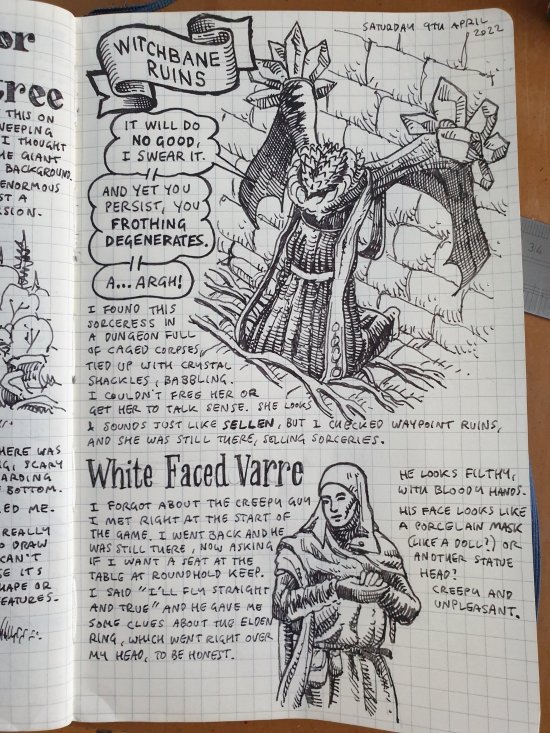 or
tree
THIS ON
WEEPING
I THOUGHT
HE GIANT
BACKGROUND.
ENORMOUS
ST A
SION.
HERE WAS
GI, SCARY
ARDING
BOTTOM.
LED ME.
REALLY
O DRAW
CAN'T
SE ITS
HAPE OR
EATURES.
SATURDAY 9TH APRIL
2022
WITCHBANE
RUINS
IT WILL DO
NO GOOD,
I SWEAR IT.
AND YET YOU
PERSIST, YOU
FROTHING
DEGENERATES.
A... ARGH!
I FOUND THIS
SORCERESS IN
A DUNGEON FULL
OF CAGED CORPSES,
TIED UP WITH CRYSTAL
SHACKLES, BABBLING.
I COULDN'T FREE HER OR
GET HER TO TALK SENSE. SHE LOOKS
& SOUNDS JUST LIKE SELLEN, BUT I CHECKED WAYPOINT RUINS,
AND SHE WAS STILL THERE, SELLING SORCERIES.
White Faced Varre
I FORGOT ABOUT THE CREEPY GUY
I MET RIGHT AT THE START OF
THE GAME. I WENT BACK AND HE
WAS STILL THERE, NOW ASKING
IF I WANT A SEAT AT THE
TABLE AT ROUNDHOLD KEEP.
I SAID "I'LL FLY STRAIGHT
AND TRUE" AND HE GAVE ME
SOME CLUES ABOUT THE ELDEN
RING, WHICH WENT RIGHT OVER
MY HEAD, TO BE HONEST.
HE LOOKS FILTHY,
WITH BLOODY HANDS.
HIS FACE LOOKS LIKE
A PORCELAIN MASK
(LIKE A DOLL?) OR
ANOTHER STATUE
HEAD?
CREEPY AND
UNPLEASANT.
34